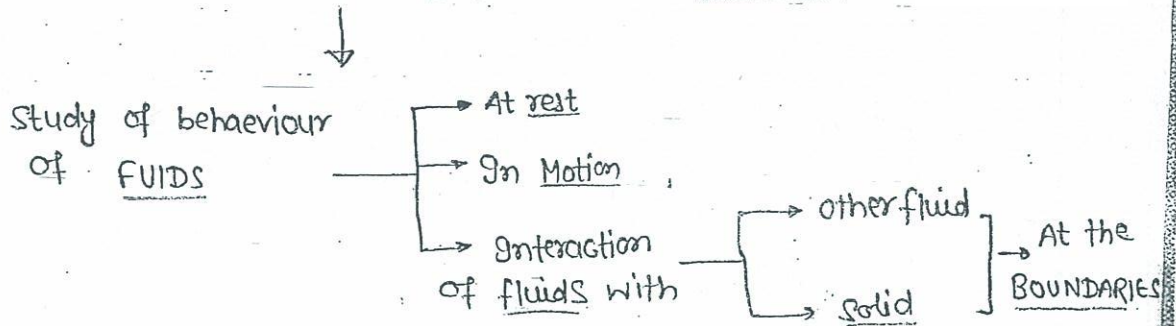 Study of behaeviour
of FUIDS
At rest
In Motion
Interaction
of fluids with
other fluid
solid
At the
BOUNDARIES